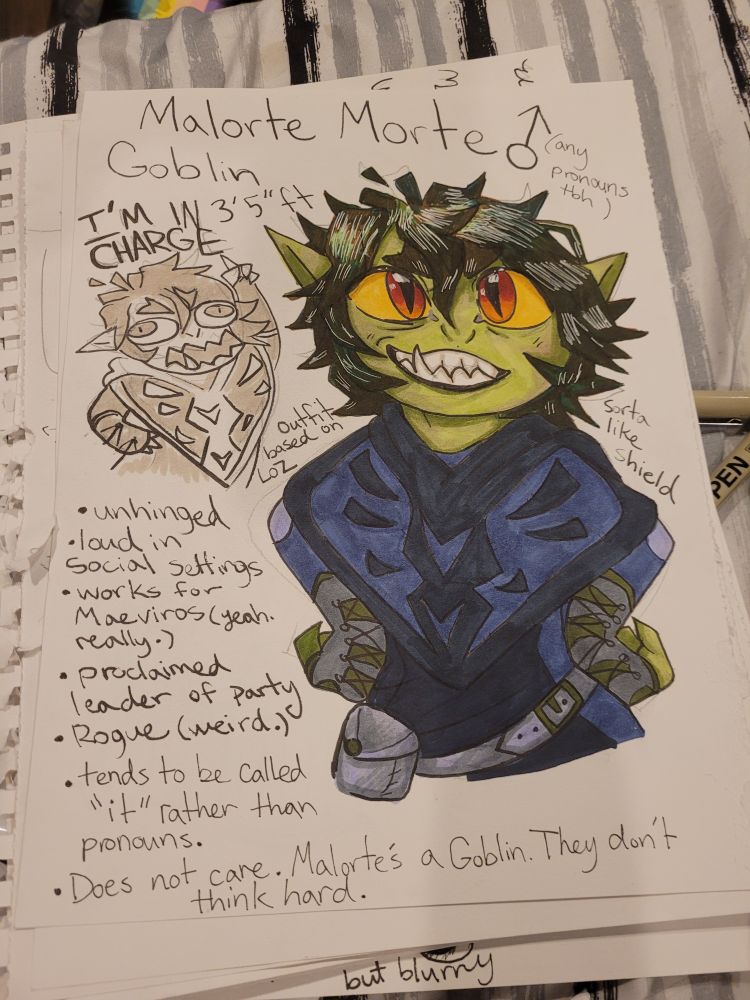 Malorte Morte ♂
(any
pronouns
tbh)
Goblin
3'5"ft
I'M IN
CHARGE
outfit
based on
LoZ
sorta
like
shield
• unhinged
• loud in
social settings
• works for
Maeviros (yeah.
really.)
• proclaimed
leader of party
• Rogue (weird.)
• tends to be called
"it" rather than
pronouns.
• Does not care. Malorte's a Goblin. They don't
think hard.
but blurry
PEN